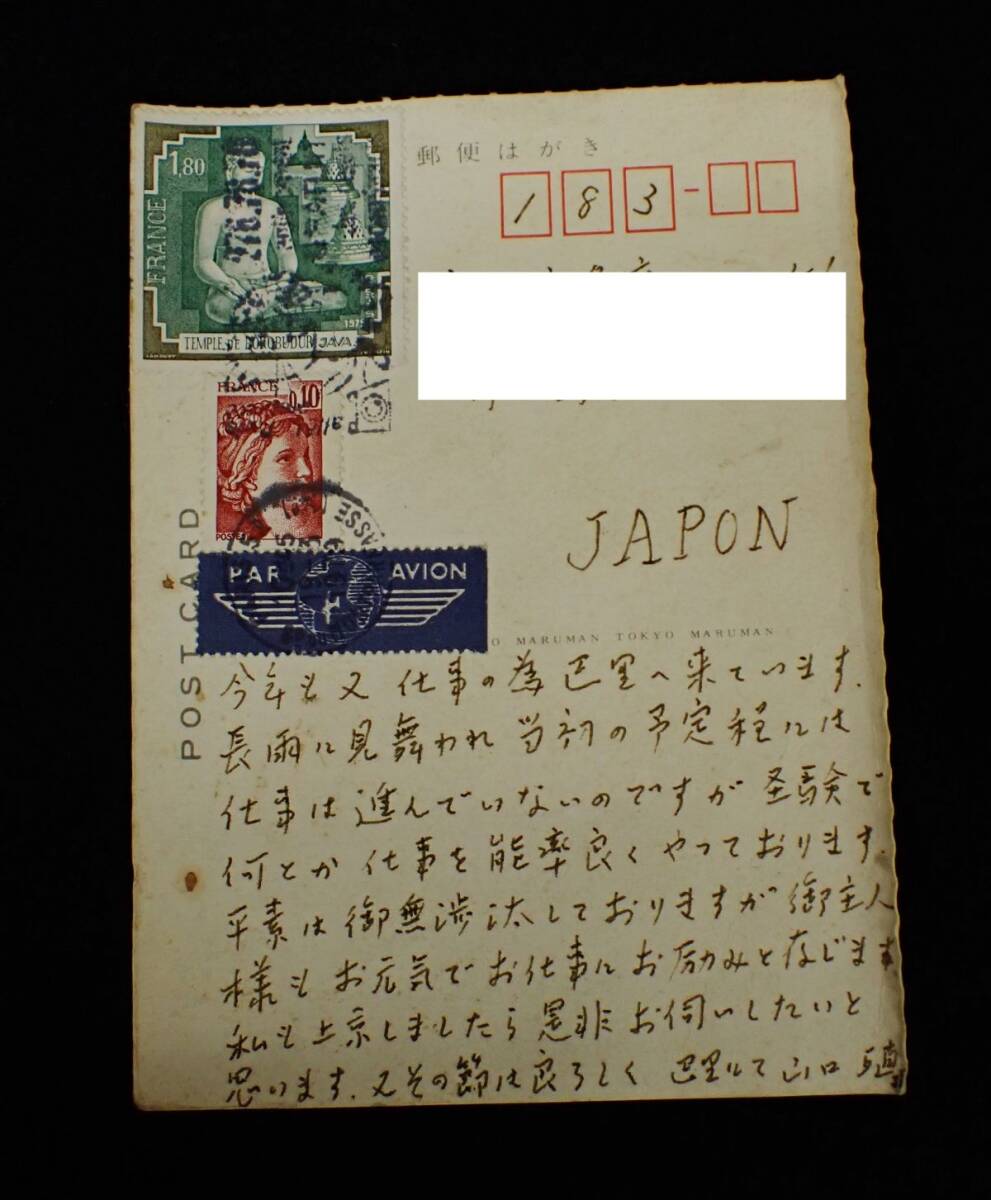 郵便はがき
183-
1,80
FRANCE
1979
TEMPLE DE BOROBUDUR JAVA
FRANCE
0,10
POSTES
PAR AVION
JAPON
POST CARD
O MARUMAN TOKYO MARUMAN
今年も又 仕事の為巴里へ来ています.
長雨に見舞われ 当初の予定程には
仕事は進んでいないのですが 経験で
何とか 仕事を能率良くやっております.
平素は御無沙汰しておりますが 御主人
様も お元気でお仕事にお励みと存じます
私も上京しましたら是非お伺いしたいと
思います. 又その節は良ろしく 巴里にて 山口